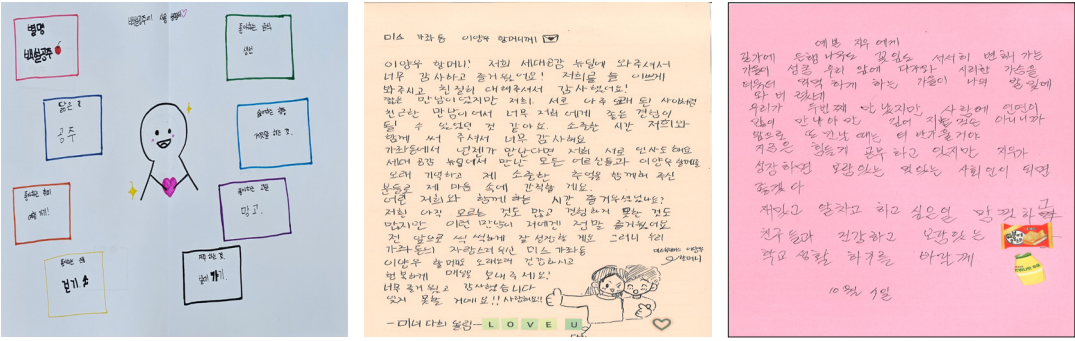 별명
백설공주
좋아하는 음식
생선
닮은 꼴
공주
망고.
걷기
미스 가좌동 이양우 할머니께
이양우 할머니! 저희 세대공감 뉴딜에 와주셔서
너무 감사하고 즐거웠어요! 저희를 늘 이쁘게
봐주시고 친절히 대해주셔서 감사했어요!
짧은 만남이었지만 저희 서로 아주 오래된 사이처럼
친근한 만남이어서 너무 저희에게 좋은 경험이
될 수 있었던 것 같아요. 소중한 시간 저희와
함께 써 주셔서 너무 감사해요
가좌동에서 언젠가 만난다면 저희 서로 인사도해요
세대 공감 뉴딜에서 만난 모든 어르신들과 이양우 할머니를
오래 기억하고 제 소중한 추억을 함께해 주신
분들로 제 마음 속에 간직할 게요.
어떤 저희와 함께 하는 시간 즐거우셨었나요?
저희 아직 모르는 것도 많고 경험하지 못한 것도
많지만 이런 만남이 저에겐 정말 즐거웠어요
전 앞으로 씩씩하게 잘 성장할 게요 그러니 우리
가좌동의 자랑스러우신 미스 가좌동
이양우 할머니도 오래오래 건강하시고
행복하게 매일 보내주세요!
너무 즐거웠고 감사했습니다
잊지 못할 거에요!! 사랑해요!!
할머니
-미녀 다희 올림-
LOVE U
예쁜 지우에게
길가에 은행나무도 꽃잎도 서서히 변해 가는
가을이 성큼 우리 앞에 다가와 시리한 가슴을
하게 하는 가을이 나의 발 밑에
와 버렸다네
우리가 두번째 만났지만 사람에 인연이
많이 만나야 만 깊어 지는 것은 아니니까
앞으로 또 만날 때는 더 반가울거야
지금은 힘들게 공부하고 있지만 지우가
성장 하면 보람있는 멋있는 사회인이 되면
좋겠다
자알고 알차고 하고 싶은일 맘껏하고
친구들과 건강하고 보람있는
학교 생활 하기를 바랄께
10월 4일